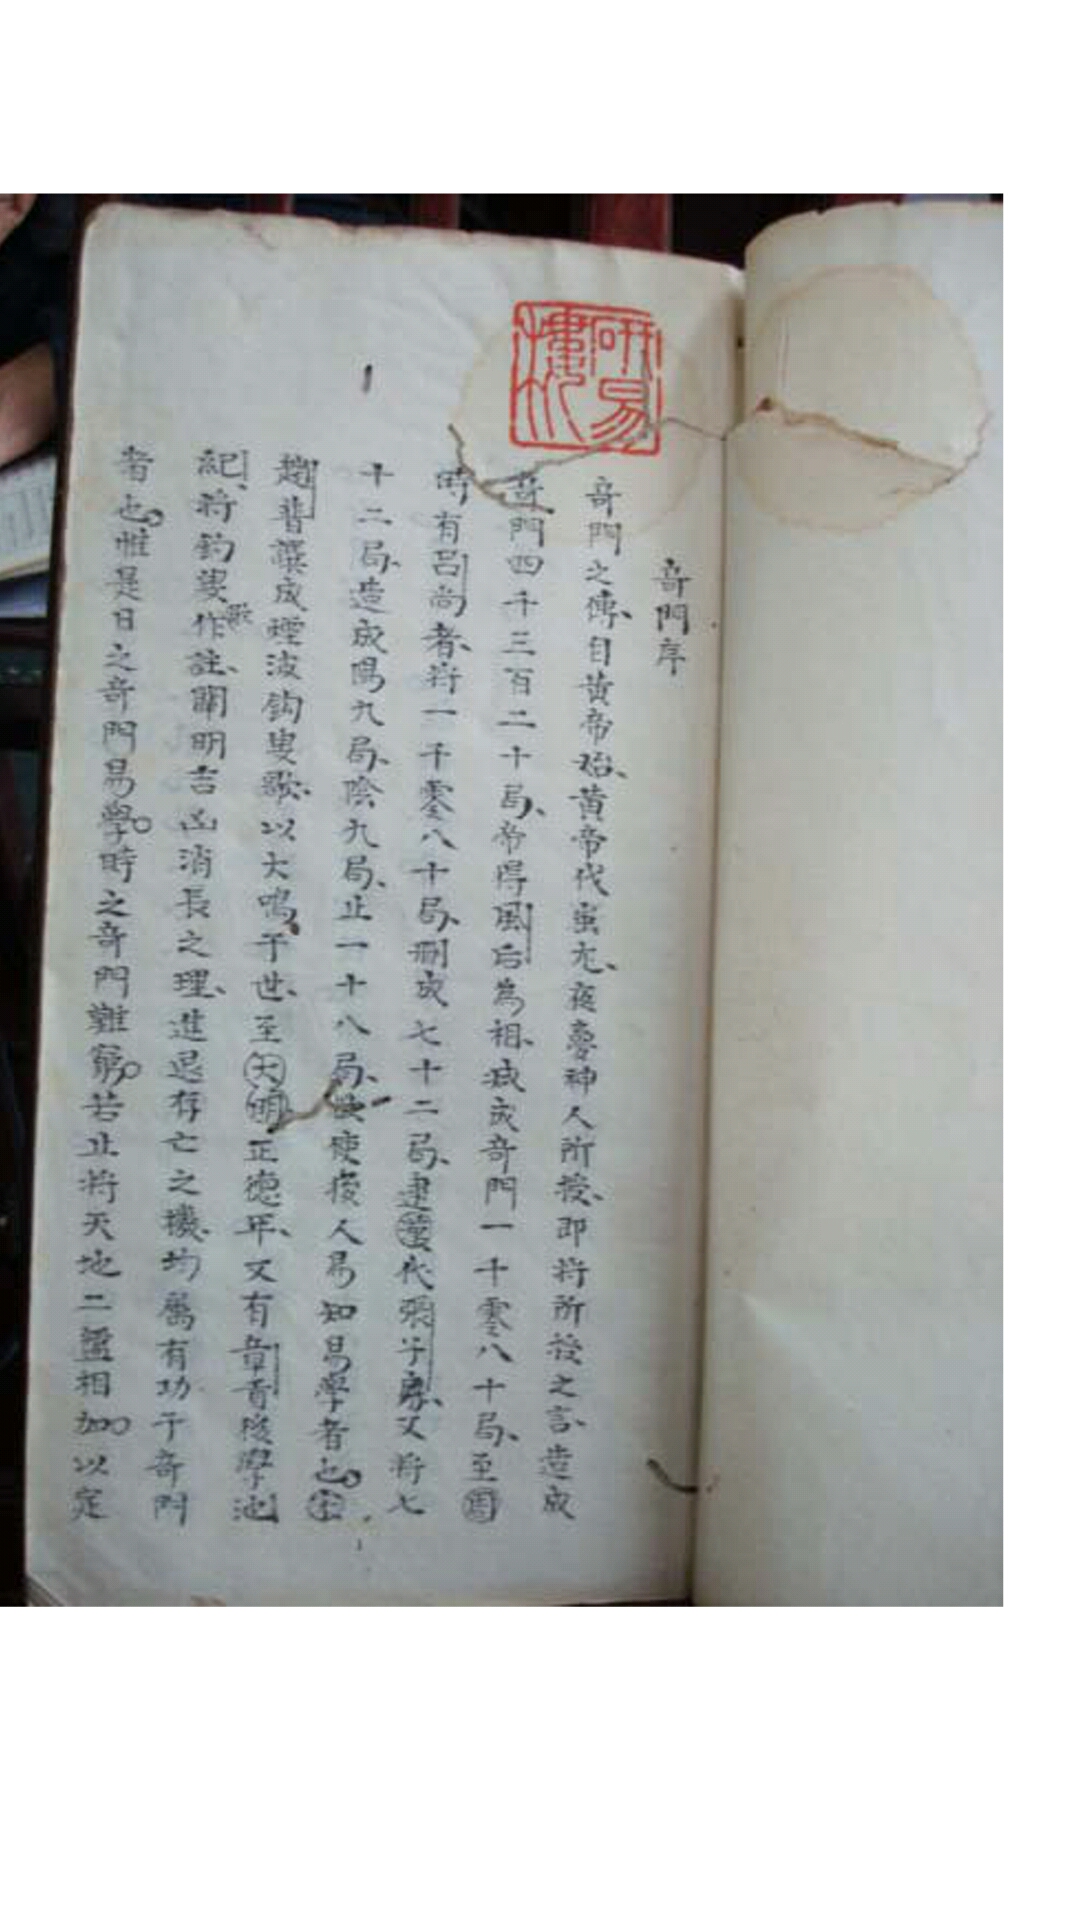 研易樓
奇門序
奇門之傳、自黃帝始、黃帝代蚩尤、夜夢神人所授、即將所授之言、造成
奇門四千三百二十局、帝得風后為相、減成奇門一千零八十局、至周
時有呂尚者、將一千零八十局、刪成七十二局、逮漢代張子房、又將七
十二局、造成陽九局、陰九局、止一十八局、使後人易知易學者也。宋
趙普譔成煙波釣叟歌、以大鳴于世、至大明正德年、又有章後學池
紀、將釣叟歌作註、闡明吉凶消長之理、進退存亡之機、均屬有功于奇門
者也。惟是日之奇門易學。時之奇門難窮。若止將天地二盤相加。以定